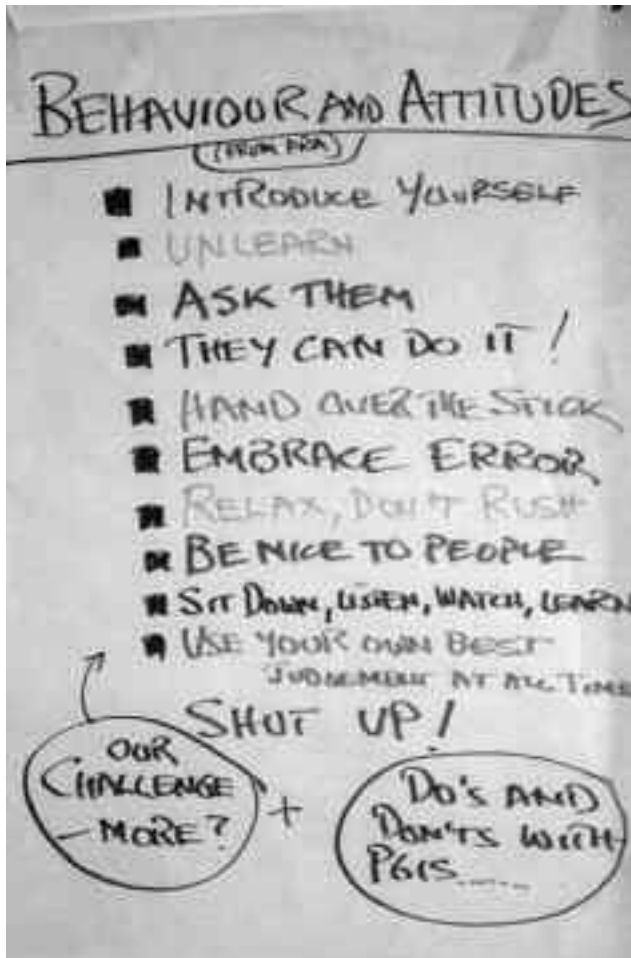 BEHAVIOUR AND ATTITUDES
(FROM PRA)
INTRODUCE YOURSELF
UNLEARN
ASK THEM
THEY CAN DO IT!
HAND OVER THE STICK
EMBRACE ERROR
RELAX, DON'T RUSH
BE NICE TO PEOPLE
SIT DOWN, LISTEN, WATCH, LEARN
USE YOUR OWN BEST
JUDGEMENT AT ALL TIME
SHUT UP!
OUR
CHALLENGE
— MORE?
+
DO'S AND
DON'TS WITH
PGIS.....